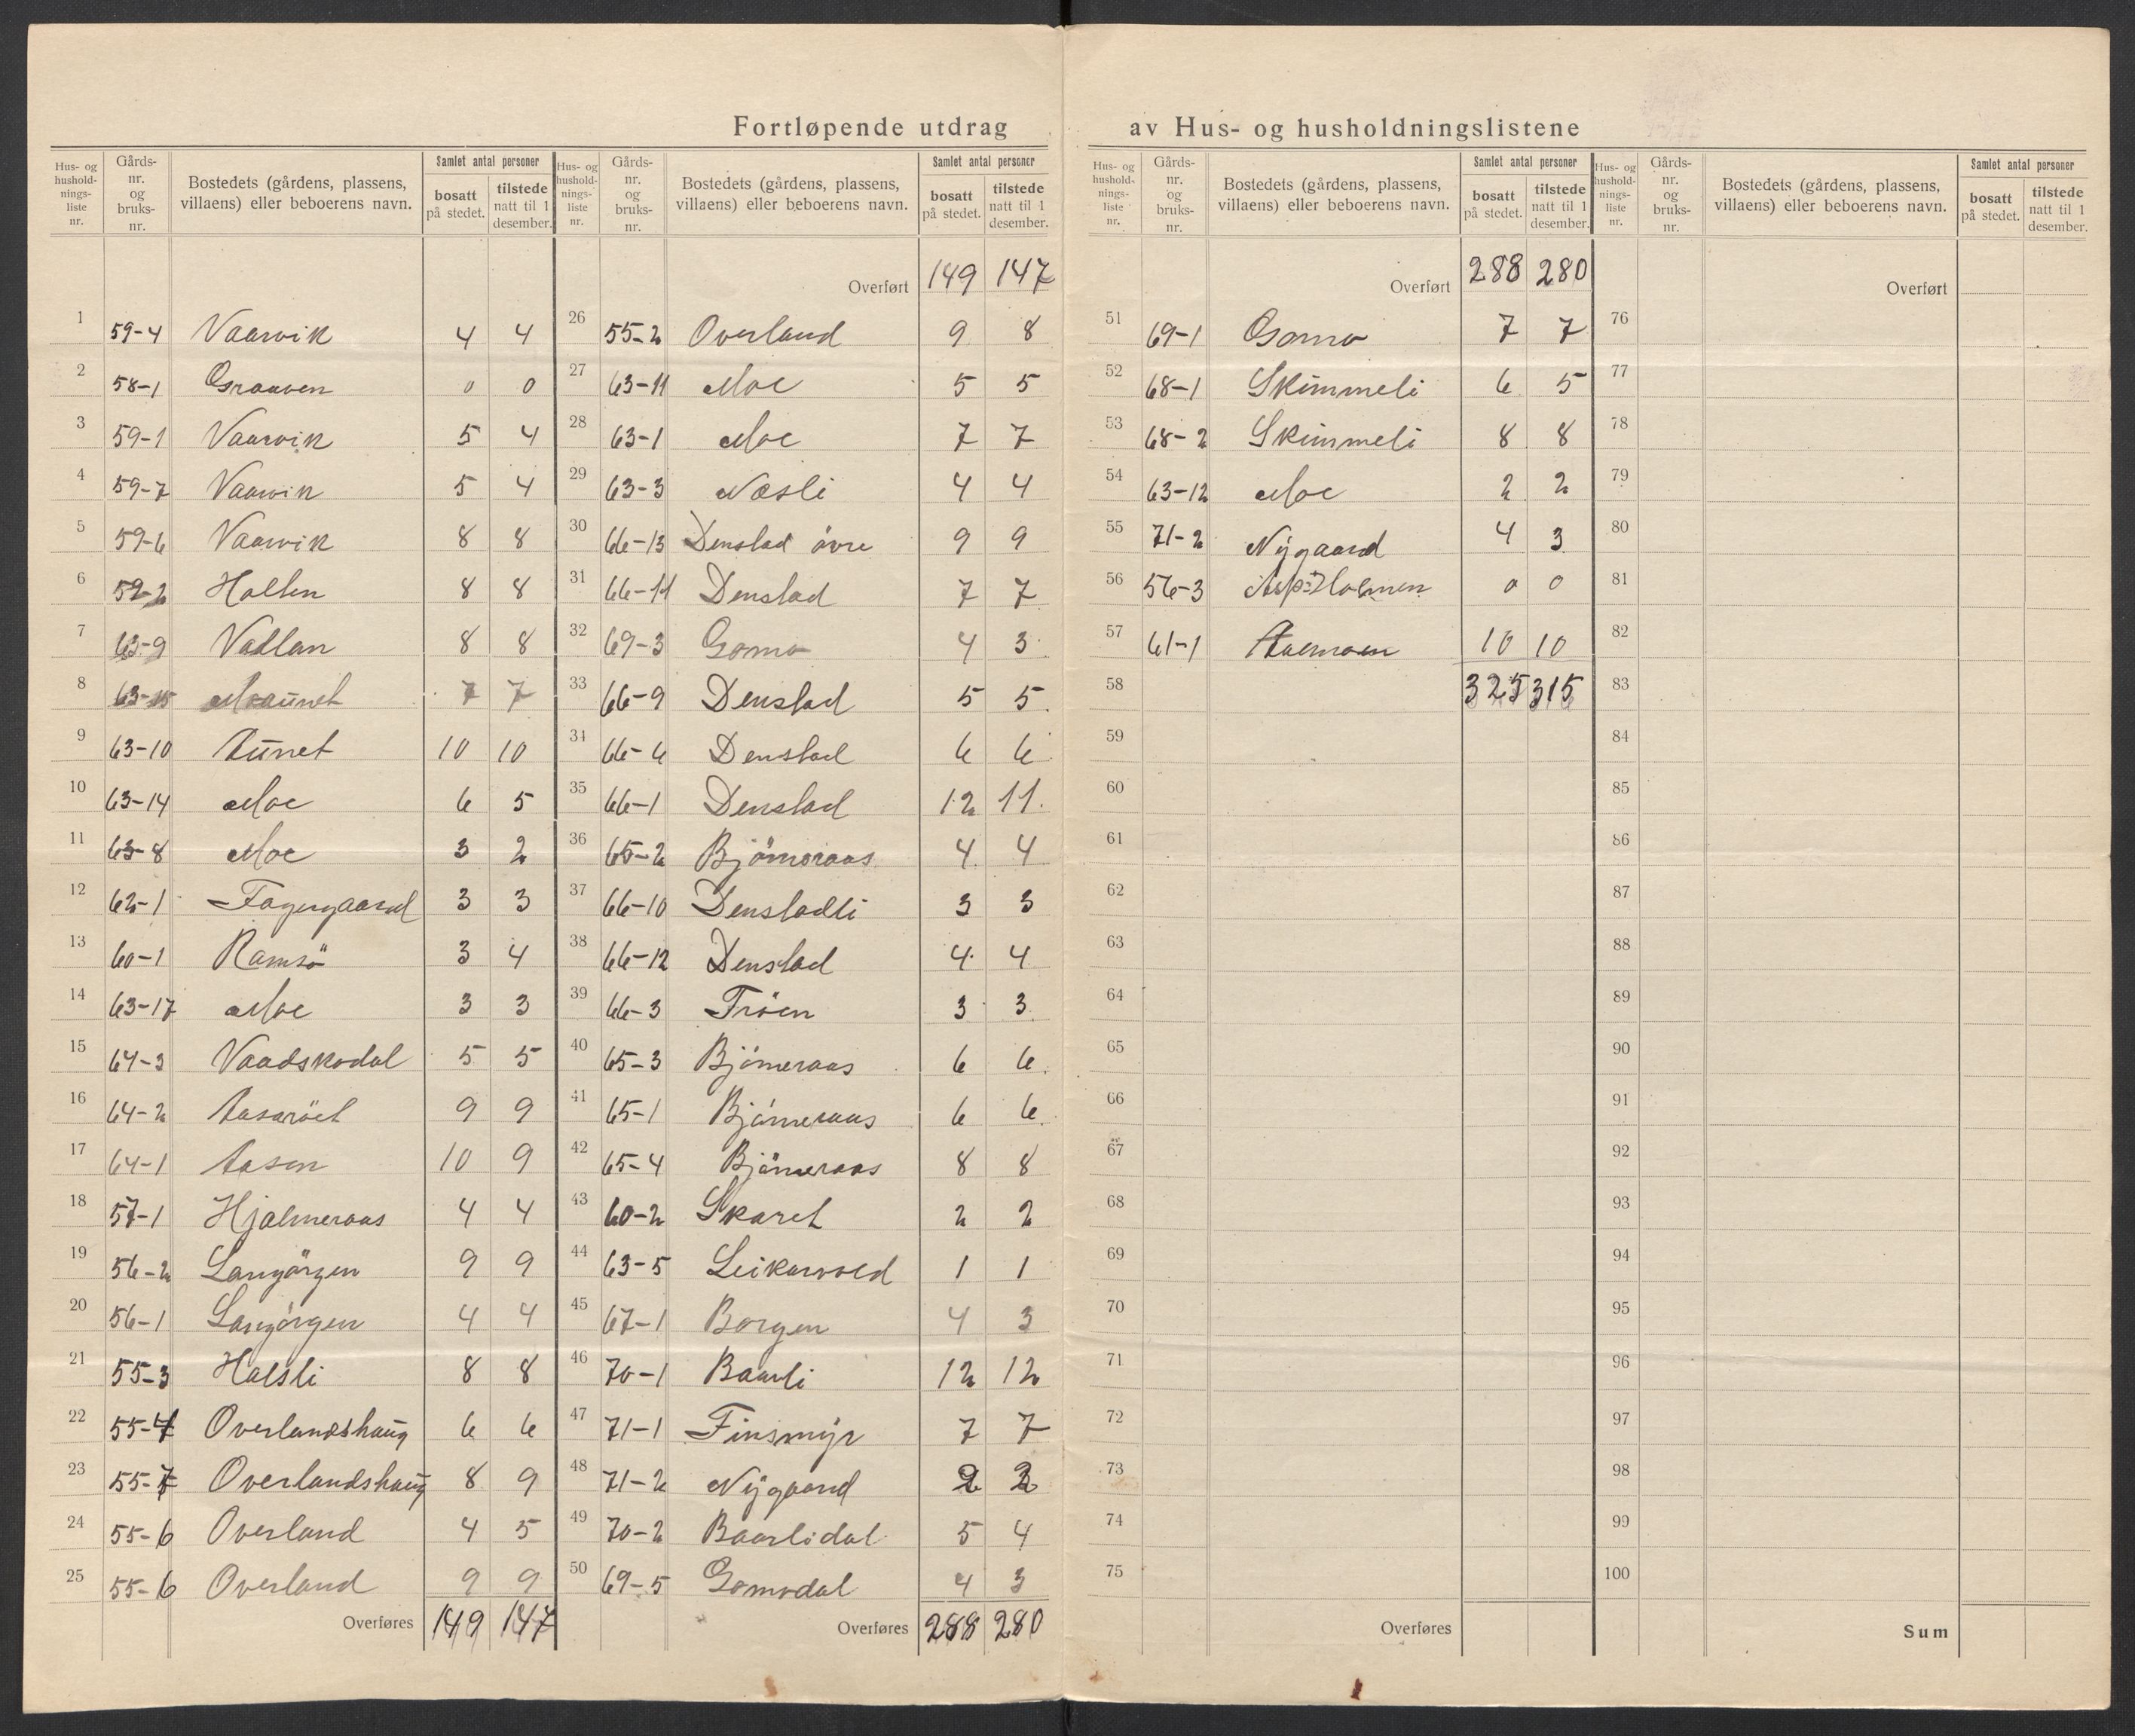 Fortløpende utdrag av Hus- og husholdningslistene
Hus- og husholdningsliste nr. Gårdsnr. og bruksnr. Bostedets (gårdens, plassens, villaens) eller beboerens navn. Samlet antal personer bosatt på stedet. tilstede natt til 1 desember.
1 59-4 Vaarvik 4 4
2 58-1 Graaven 0 0
3 59-1 Vaarvik 5 4
4 59-7 Vaarvik 5 4
5 59-6 Vaarvik 8 8
6 59-2 Halten 8 8
7 63-9 Vadlan 8 8
8 63-15 Moaunet 7 7
9 63-10 Aunet 10 10
10 63-14 Moe 6 5
11 63-8 Moe 3 2
12 62-1 Fagergaard 3 3
13 60-1 Ramsö 3 4
14 63-17 Moe 3 3
15 64-3 Vaadskodal 5 5
16 64-2 Aasaröet 9 9
17 64-1 Aasen 10 9
18 57-1 Hjalmeraas 4 4
19 56-2 Langörgen 9 9
20 56-1 Langörgen 4 4
21 55-3 Halsli 8 8
22 55-4 Overlandshaug 6 6
23 55-7 Overlandshaug 8 9
24 55-6 Overland 4 5
25 55-6 Overland 9 9
Overføres 149 147
Hus- og husholdningsliste nr. Gårdsnr. og bruksnr. Bostedets (gårdens, plassens, villaens) eller beboerens navn. Samlet antal personer bosatt på stedet. tilstede natt til 1 desember.
Overført 149 147
26 55-2 Overland 9 8
27 63-11 Moe 5 5
28 63-1 Moe 7 7
29 63-3 Næsli 4 4
30 66-13 Denstad övre 9 9
31 66-11 Denstad 7 7
32 69-3 Gomo 4 3
33 66-9 Denstad 5 5
34 66-6 Denstad 6 6
35 66-1 Denstad 12 11
36 65-2 Björneraas 4 4
37 66-10 Denstadli 3 3
38 66-12 Denstad 4 4
39 66-3 Tröen 3 3
40 65-3 Björneraas 6 6
41 65-1 Björneraas 6 6
42 65-4 Björneraas 8 8
43 60-2 Skaret 2 2
44 63-5 Leikarvold 1 1
45 67-1 Borgen 4 3
46 70-1 Baarli 12 12
47 71-1 Finsmyr 7 7
48 71-2 Nygaard 2 2
49 70-2 Baarlidal 5 4
50 69-5 Gomodal 4 3
Overføres 288 280
Hus- og husholdningsliste nr. Gårdsnr. og bruksnr. Bostedets (gårdens, plassens, villaens) eller beboerens navn. Samlet antal personer bosatt på stedet. tilstede natt til 1 desember.
Overført 288 280
51 69-1 Gomo 7 7
52 68-1 Skimmeli 6 5
53 68-2 Skimmeli 8 8
54 63-12 Moe 2 2
55 71-2 Nygaard 4 3
56 56-3 Asp-Holmen 0 0
57 61-1 Aalmoen 10 10
58 325 315
59
60
61
62
63
64
65
66
67
68
69
70
71
72
73
74
75
Overføres
Hus- og husholdningsliste nr. Gårdsnr. og bruksnr. Bostedets (gårdens, plassens, villaens) eller beboerens navn. Samlet antal personer bosatt på stedet. tilstede natt til 1 desember.
Overført
76
77
78
79
80
81
82
83
84
85
86
87
88
89
90
91
92
93
94
95
96
97
98
99
100
Sum